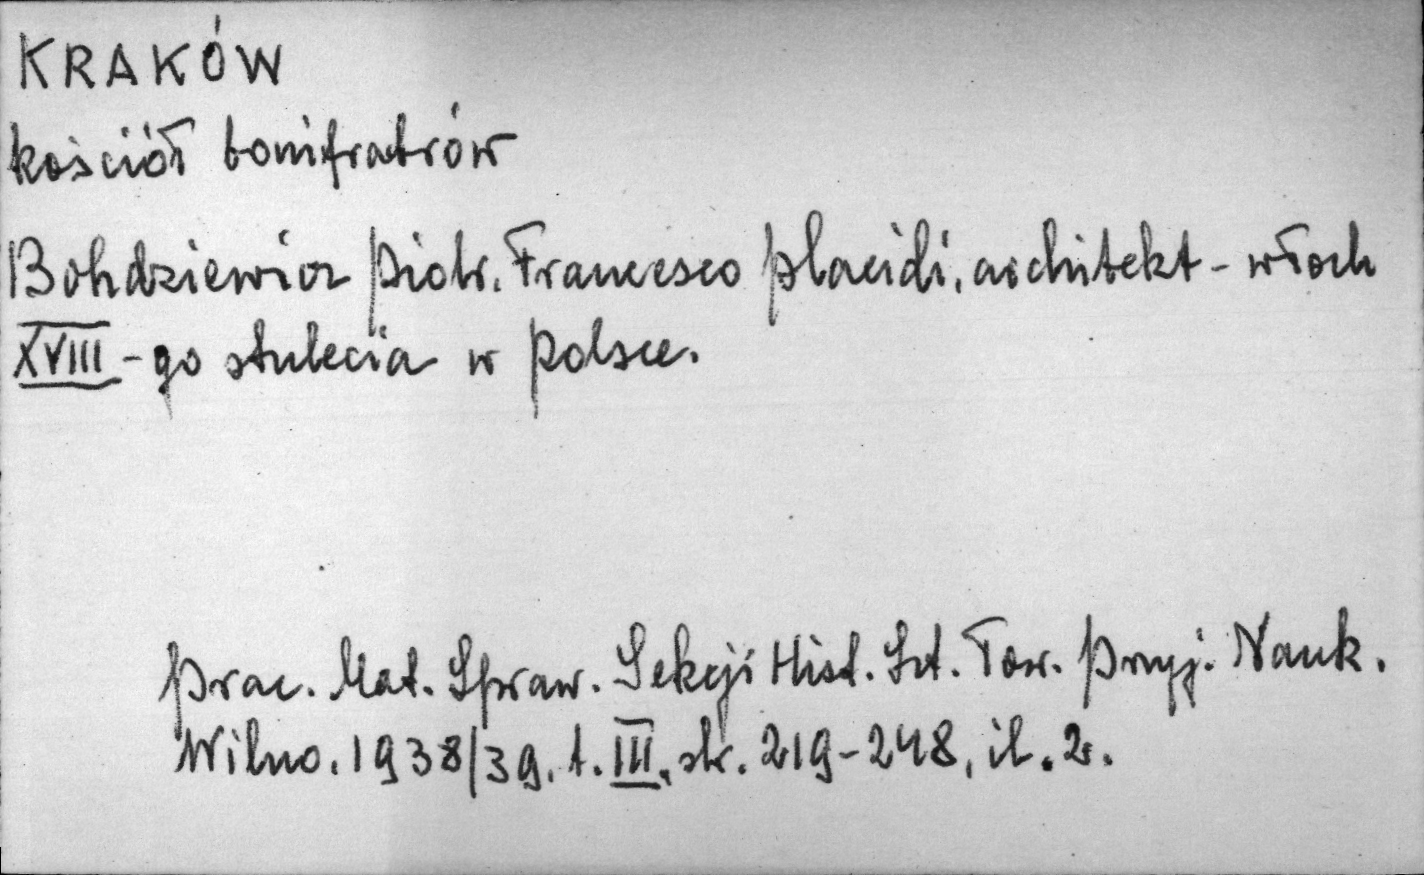 KRAKÓW
kościół bonifratrów
Bohdziewicz Piotr. Francesco Placidi, architekt - włoch
XVIII - go stulecia w Polsce.
Prac. Mat. Spraw. Sekcji Hist. Szt. Tow. Przyj. Nauk.
Wilno. 1938/39. t. III. str. 219-248, il. 2.